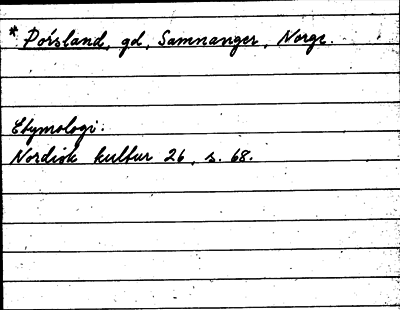 * Þórsland, gd, Samnanger, Norge.
Etymologi:
Nordisk kultur 26, s. 68.